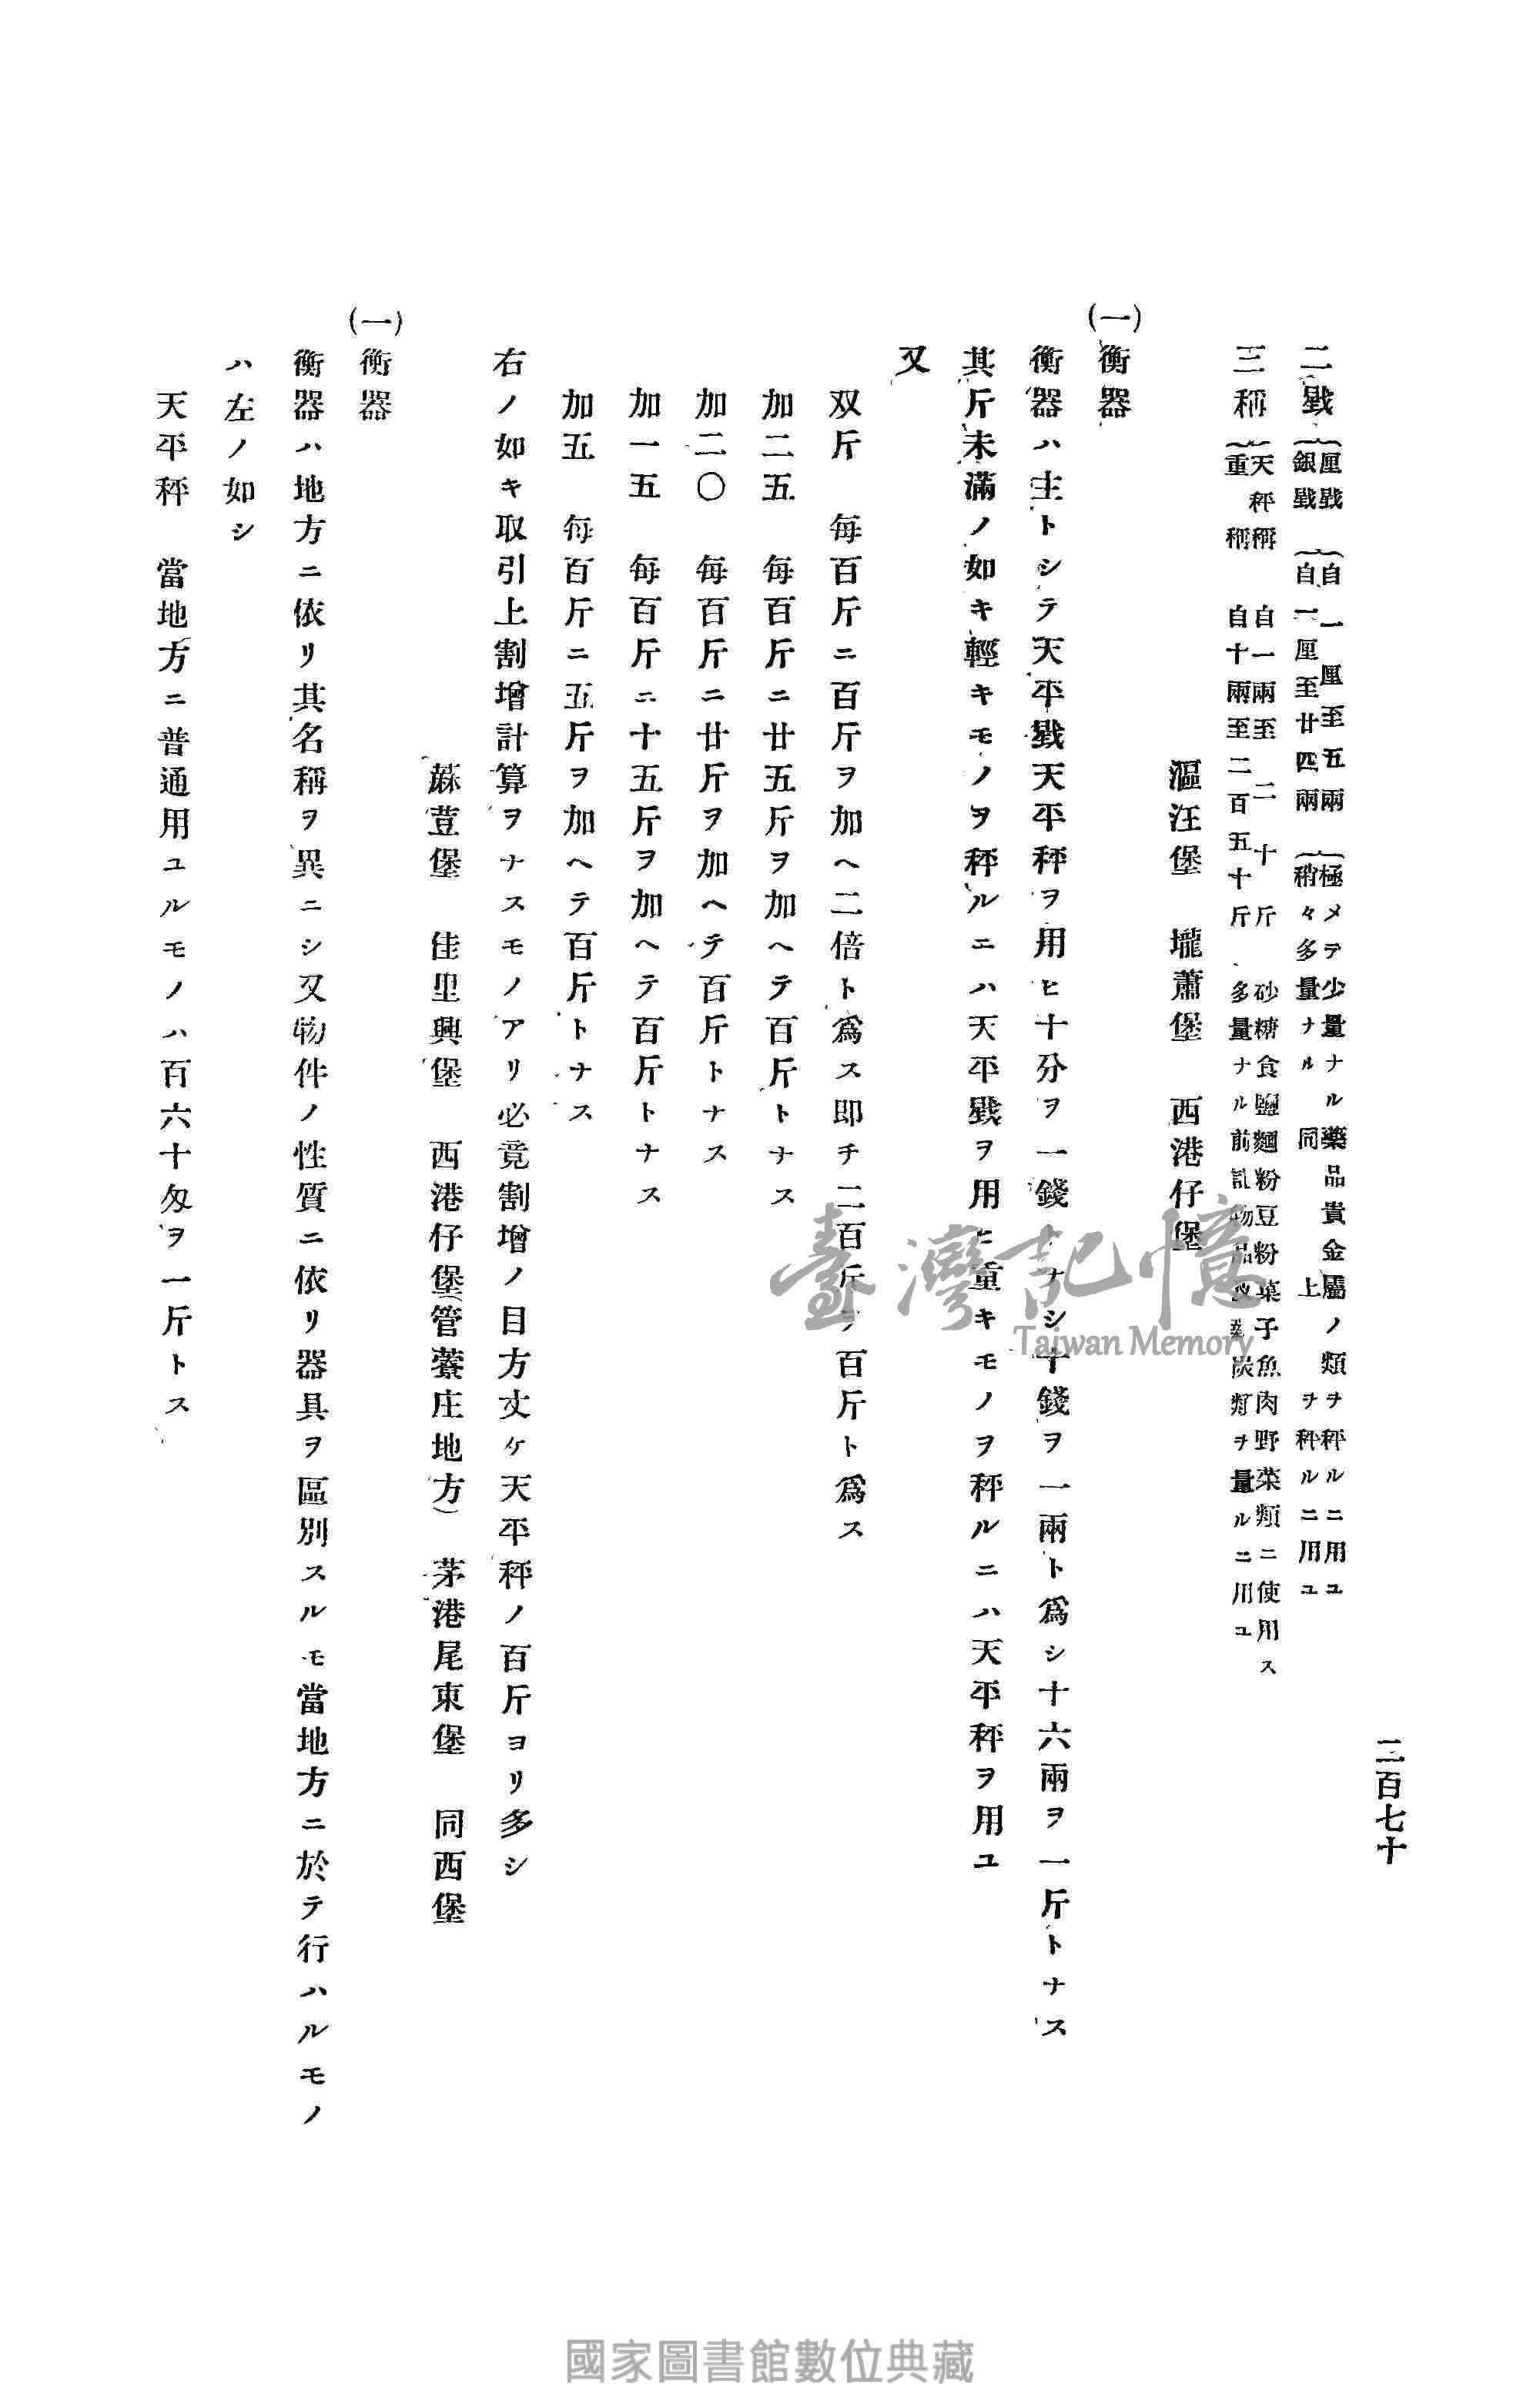 二百七十
二戥 厘戥 自一厘至五兩 極メテ少量ナル藥品貴金屬ノ類ヲ秤ルニ用ユ
銀戥 自一厘至廿四兩 稍々多量ナル同上ヲ秤ルニ用ユ
三稱 天秤稱 自一兩至二十斤 砂糖食鹽麵粉豆粉菓子魚肉野菜類ニ使用ス
重稱 自十兩至二百五十斤 多量ナル前記物品及薪炭類ヲ量ルニ用ユ
漚汪堡 壠蕭堡 西港仔堡
(一)衡器
衡器ハ主トシテ天平戥天平秤ヲ用ヒ十分ヲ一錢トナシ十錢ヲ一兩ト爲シ十六兩ヲ一斤トナス
其斤未滿ノ如キ輕キモノヲ秤ルニハ天平戥ヲ用ヒ重キモノヲ秤ルニハ天平秤ヲ用ユ
又
双斤 每百斤ニ百斤ヲ加ヘ二倍ト爲ス即チ二百斤ヲ百斤ト爲ス
加二五 每百斤ニ廿五斤ヲ加ヘテ百斤トナス
加二〇 每百斤ニ廿斤ヲ加ヘテ百斤トナス
加一五 每百斤ニ十五斤ヲ加ヘテ百斤トナス
加五 每百斤ニ五斤ヲ加ヘテ百斤トナス
右ノ如キ取引上割增計算ヲナスモノアリ必竟割增ノ目方丈ケ天平秤ノ百斤ヨリ多シ
蔴荳堡 佳里興堡 西港仔堡(管藔庄地方) 茅港尾東堡 同西堡
(一)衡器
衡器ハ地方ニ依リ其名稱ヲ異ニシ又物件ノ性質ニ依リ器具ヲ區別スルモ當地方ニ於テ行ハルモノ
ハ左ノ如シ
天平秤 當地方ニ普通用ユルモノハ百六十匁ヲ一斤トス
臺灣記憶
Taiwan Memory
國家圖書館數位典藏